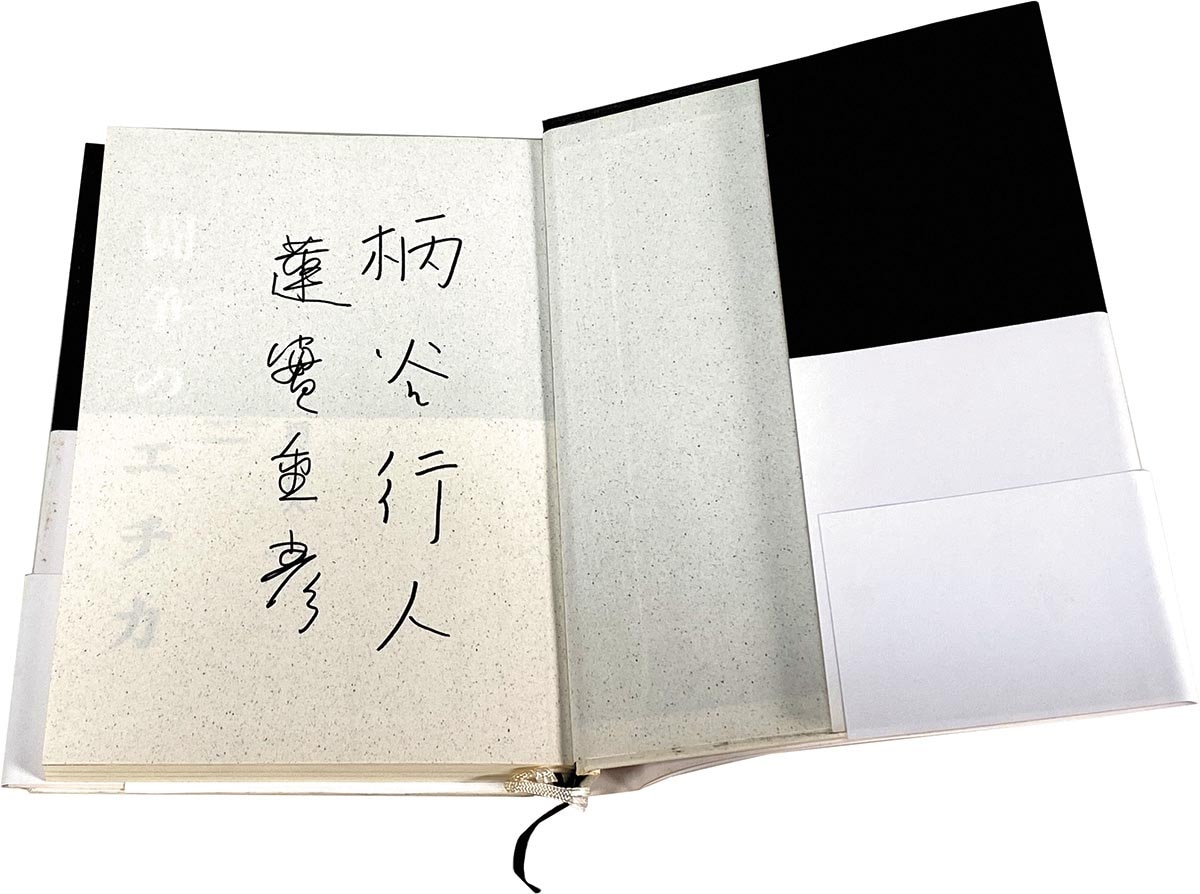 柄谷行人
蓮實重彦
闘争のエチカ